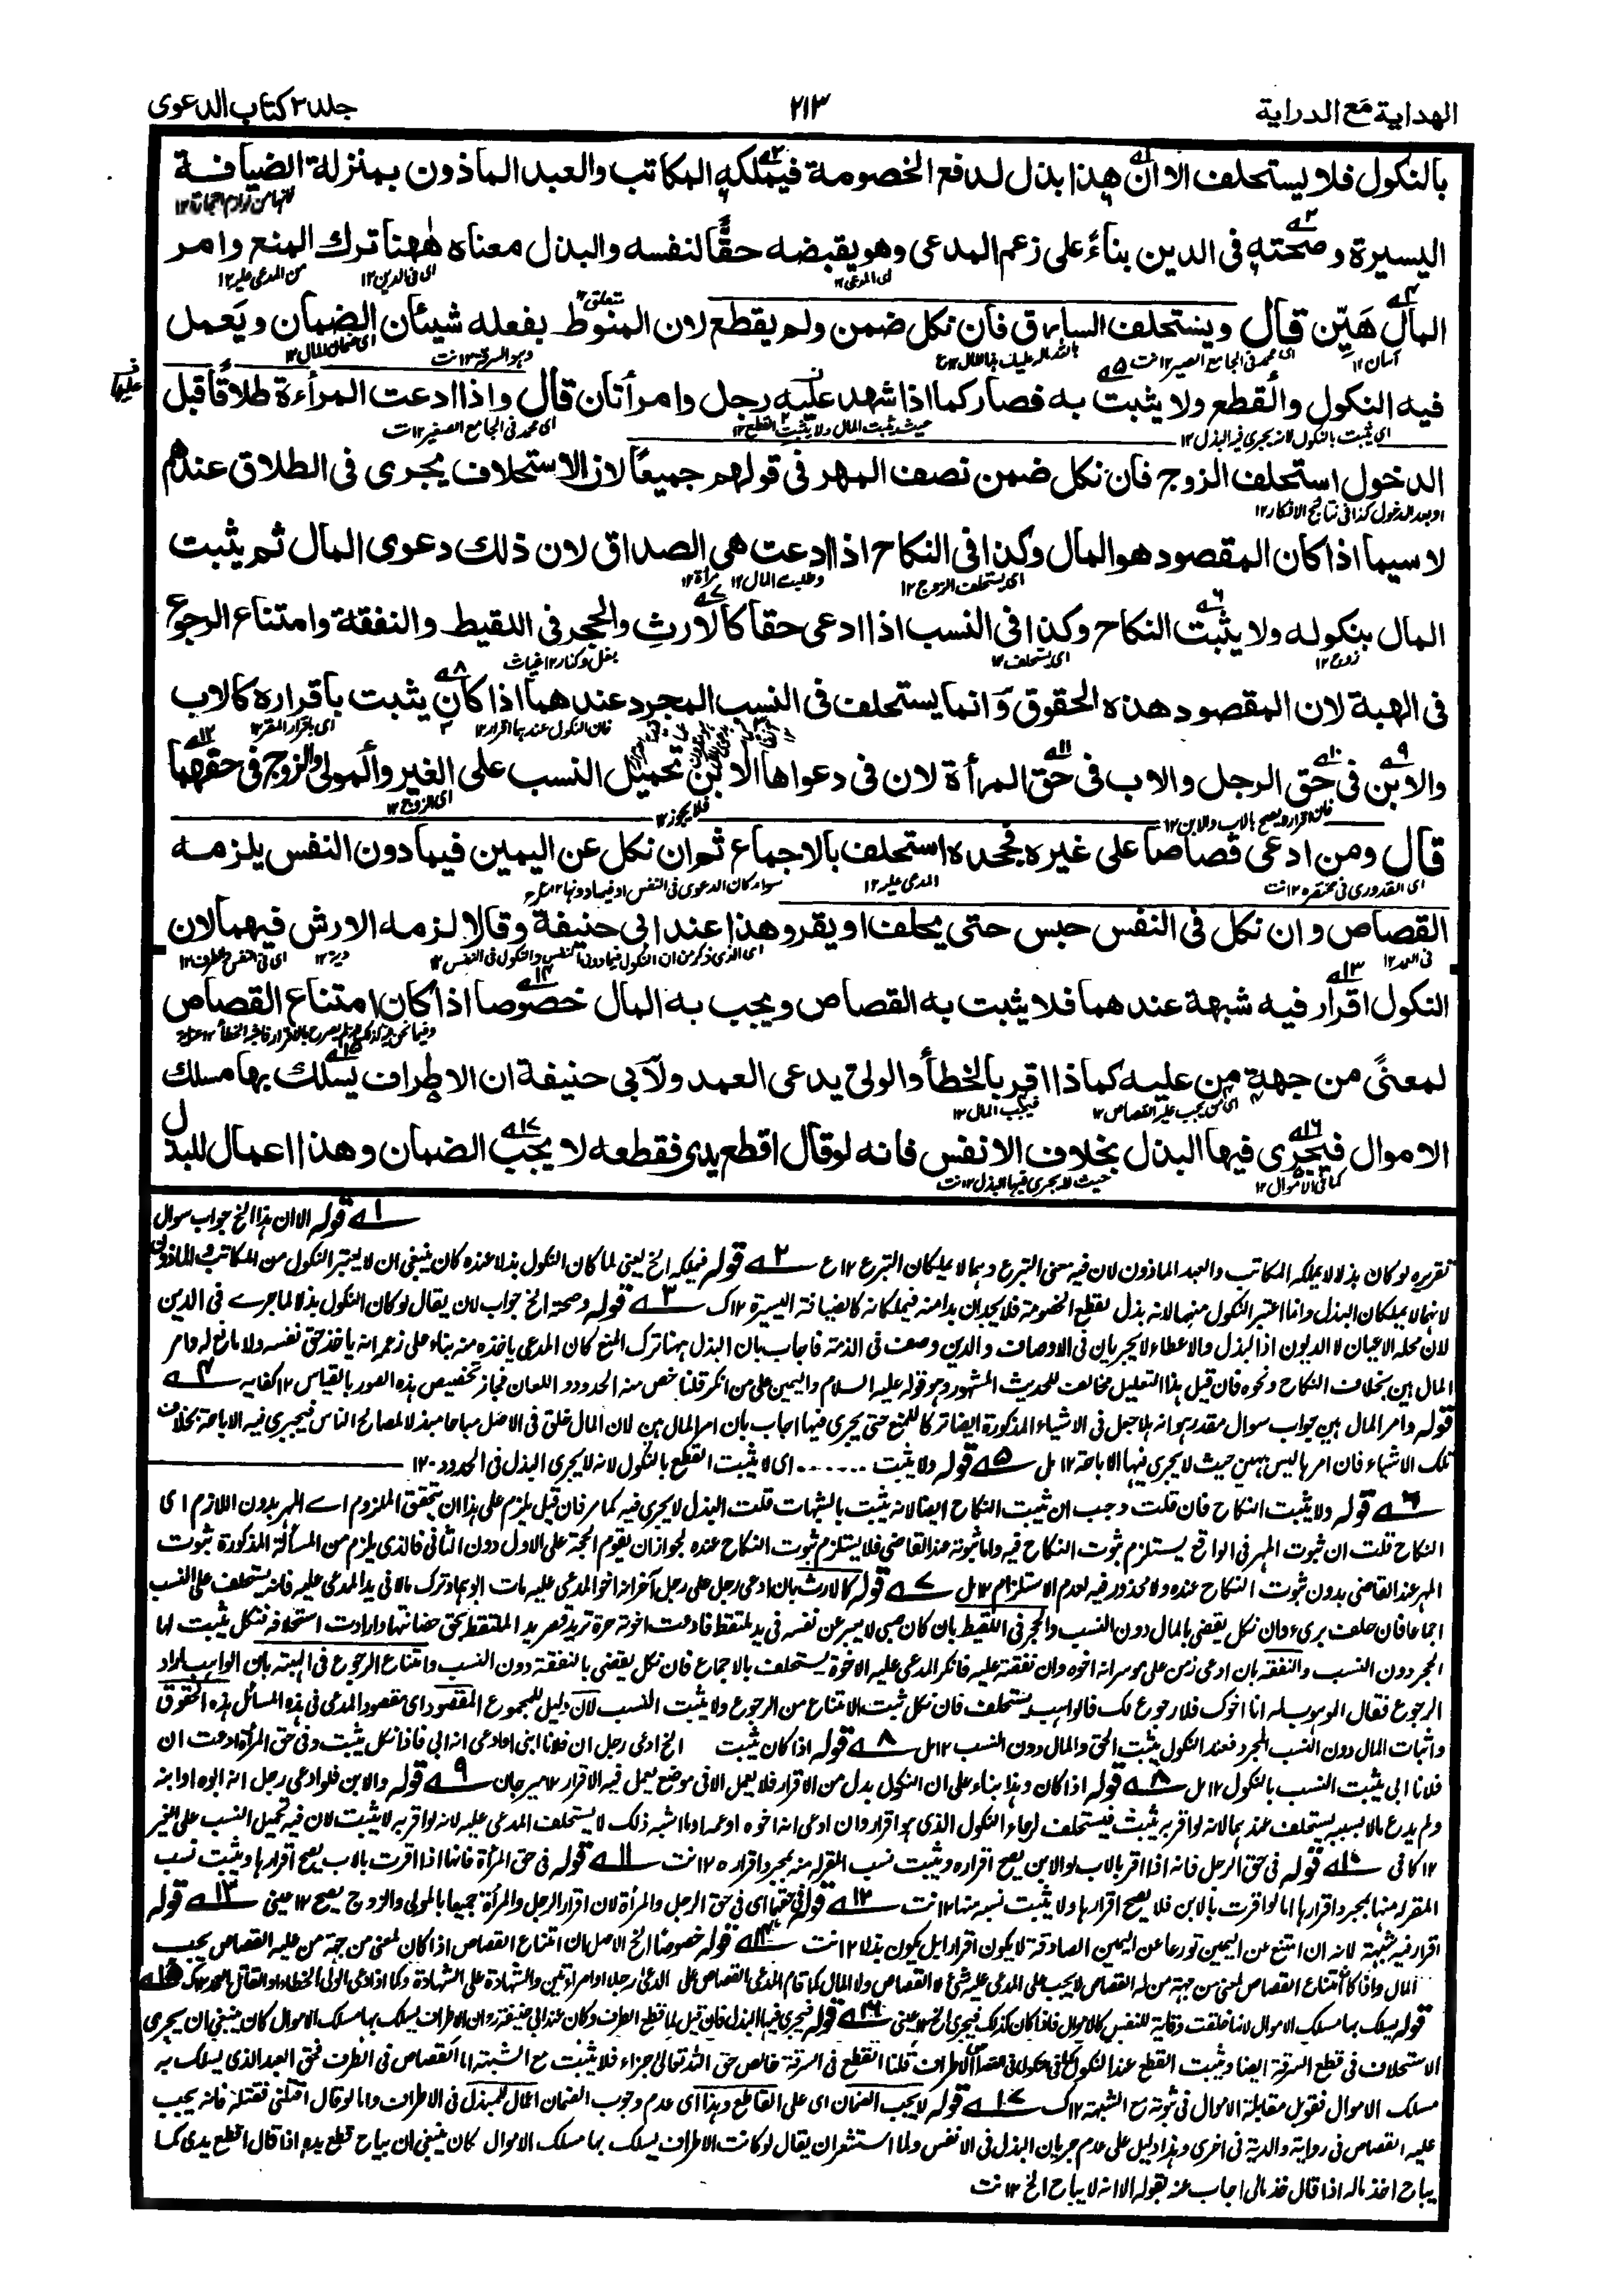 الهداية مع الدراية
٢١٣
جلد٣ كتاب الدعوى
بالنكول فلا يستحلف الا ان هذا بذل لدفع الخصومة فيملكه المكاتب والعبد الماذون بمنزلة الضيافة
اليسيرة وصحته فى الدين بناءً على زعم المدعى وهو يقبضه حقًّا لنفسه والبذل معناه ههنا ترك المنع وامر
اى المدعى ١٢
اى فى الدين ١٢
من المدعى عليه ١٢
المال هَيّن قال ويستحلف السارق فان نكل ضمن ولم يقطع لان المنوط بفعله شيئان الضمان ويَعمل
آسان ١٢
اى محمد فى الجامع الصغير ١٢ نت
وهو السرقة ١٢ نت
اى ضمان المال ١٢
فيه النكول والقطع ولا يثبت به فصار كما اذا شهد عليه رجل وامرأتان قال واذا ادعت المرأءة طلاقًا قبل
اى يثبت بالنكول لانه يجرى فيه البذل ١٢
حيث يثبت المال ولا يثبت القطع ١٢
اى محمد فى الجامع الصغير ١٢ نت
الدخول استحلف الزوج فان نكل ضمن نصف المهر فى قولهم جميعًا لان الاستحلاف يجرى فى الطلاق عندهم
او بعد الدخول كذا فى نتائج الافكار ١٢
لاسيما اذا كان المقصود هو المال وكذا فى النكاح اذا ادعت هى الصداق لان ذلك دعوى المال ثم يثبت
اى يستحلف الزوج ١٢
وطلبت المال ١٢
المال بنكوله ولا يثبت النكاح وكذا فى النسب اذا ادعى حقا كالارث والحجر فى اللقيط والنفقة وامتناع الرجوع
زوج ١٢
اى يستحلف ١٢
فى الهبة لان المقصود هذه الحقوق وَانما يستحلف فى النسب المجرد عندهما اذا كان يثبت باقراره كالاب
فان النكول عندهما اقرار ١٢
اى باقرار المقر ١٢
والابن فى حق الرجل والاب فى حق المرأة لان فى دعواها الابن تحميل النسب على الغير والمولى والزوج فى حقهما
فلا يجوز ١٢
اى الزوج ١٢
قال ومن ادعى قصاصا على غيره فجحده استحلف بالاجماع ثم ان نكل عن اليمين فيما دون النفس يلزمه
اى القدورى فى مختصره ١٢ نت
المدعى عليه ١٢
القصاص وان نكل فى النفس حبس حتى يحلف او يقر وهذا عند ابى حنيفة وقالا لزمه الارش فيهما لان
دية ١٢
النكول اقرار فيه شبهة عندهما فلا يثبت به القصاص ويجب به المال خصوصا اذا كان امتناع القصاص
لمعنًى من جهة من عليه كما اذا اقر بالخطأ والولى يدعى العمد ولابى حنيفة ان الاطراف يسلك بها مسلك
اى من يجب عليه القصاص ١٢
فيجب المال ١٢
الاموال فيجرى فيها البذل بخلاف الانفس فانه لو قال اقطع يدى فقطعه لا يجب الضمان وهذا اعمال للبذل
كما فى الاموال ١٢
حيث لا يجرى فيها البذل ١٢ نت
١ قوله الا ان هذا الخ جواب سوال
تقريره لو كان بذلا لا يملكه المكاتب والعبد الماذون لان فيه معنى التبرع وهما لا يملكان التبرع ١٢ ع ٢ قوله فيملكه الخ يعنى لما كان النكول بذلا عنده كان ينبغى ان لا يعتبر النكول من المكاتب والماذون
لانهما لا يملكان البذل وانما اعتبر النكول منهما لانه بذل لقطع الخصومة فلا يجدان بدا منه فيملكانه كالضيافة اليسيرة ١٢ ك ٣ قوله وصحته الخ جواب لان يقال لو كان النكول بذلا لما جرے فى الدين
لان محله الاعيان لا الديون اذا البذل والاعطاء لا يجريان فى الاوصاف والدين وصف فى الذمة فاجاب بان البذل ههنا ترك المنع كان المدعى ياخذه منه بناء على زعمه انه ياخذ حق نفسه ولا مانع له وامر
المال هين بخلاف النكاح ونحوه فان قيل هذا التعليل مخالف للحديث المشهور وهو قوله عليه السلام واليمين على من انكر قلنا خص منه الحدود واللعان فجاز تخصيص هذه الصور بالقياس ١٢ كفايه ٤
قوله وامر المال هين جواب سوال مقدر هو انه هلا جعل فى الاشياء المذكورة ايضا تركا للمنع حتى يجرى فيها اجاب بان امر المال هين لان المال خلق فى الاصل مباحا مبذلا لمصالح الناس فيجرى فيه الاباحة بخلاف
تلك الاشياء فان امرها ليس بهين حيث لا يجرى فيها الاباحة ١٢ مل ٥ قوله ولا يثبت ....... اى لا يثبت القطع بالنكول لانه لا يجرى البذل فى الحدود ١٢
٦ قوله ولا يثبت النكاح فان قلت وجب ان يثبت النكاح ايضا لانه يثبت بالشبهات قلت البذل لا يجرى فيه كما مر فان قيل يلزم على هذا ان يتحقق الملزوم اے المهر بدون اللازم اى
النكاح قلت ان ثبوت المهر فى الواقع يستلزم ثبوت النكاح فيه واما ثبوته عند القاضى فلا يستلزم ثبوت النكاح عنده لجواز ان يقوم الحجة على الاول دون الثانى فالذى يلزم من المسألة المذكورة ثبوت
المهر عند القاضى بدون ثبوت النكاح عنده ولا محذور فيه لعدم الاستلزام ١٢ مل ٧ قوله كالارث بان ادعى رجل على رجل آخر انه اخو المدعى عليه مات ابوهما وترك مالا فى يد المدعى عليه فانه يستحلف على النسب
اجماعا فان حلف برىء وان نكل يقضى بالمال دون النسب والحجر فى اللقيط بان كان صبى لا يعبر عن نفسه فى يد ملتقط فادعت اخوته حرة تريد قصر يد الملتقط بحق حضانتها وارادت استحلافه فنكل يثبت لها
الحجر دون النسب والنفقه بان ادعى زمن على موسر انه اخوه وان نفقته عليه فانكر المدعى عليه الاخوة يستحلف بالاجماع فان نكل يقضى بالنفقة دون النسب وامتناع الرجوع فى الهبة بان الواهب اراد
الرجوع فقال الموهوب له انا اخوك فلا رجوع لك فالواهب يستحلف فان نكل ثبت الامتناع من الرجوع ولا يثبت النسب لان دليل للمجموع المقصود اى مقصود المدعى فى هذه المسائل هذه الحقوق
واثبات المال دون النسب المجرد فعند النكول يثبت الحق والمال دون النسب ١٢ مل ٨ قوله اذا كان يثبت الخ ادعى رجل ان فلانا ابنى او ادعى انه ابى فاذا نكل يثبت وفى حق المرأة ادعت ان
فلانا ابى يثبت النسب بالنكول ١٢ مل ٨ قوله اذا كان وهذا بناء على ان النكول بدل من الاقرار فلا يعمل الا فى موضع يعمل فيه الاقرار ١٢ ميرجان ٩ قوله والابن فلو ادعى رجل انه ابوه او ابنه
ولم يدع مالا بسببه يستحلف عندهما لانه لو اقر به يثبت فيستحلف لرجاء النكول الذى هو اقرار وان ادعى انه اخوه او عمه او ما اشبه ذلك لا يستحلف المدعى عليه لانه لو اقر به لا يثبت لان فيه تحميل النسب على الغير
١٢ كافى ١٠ قوله فى حق الرجل فانه اذا اقر بالاب او الابن يصح اقراره ويثبت نسب المقر له منه بمجرد اقراره ١٢ نت ١١ قوله فى حق المرأة فانها اذا اقرت بالاب يصح اقرارها ويثبت نسب
المقر له منها بمجرد اقرارها اما لو اقرت بالابن فلا يصح اقرارها ولا يثبت نسبه منها ١٢ نت ١٢ قوله فى حقهما اى فى حق الرجل والمرأة لان اقرار الرجل والمرأة جميعا بالمولى والزوج يصح ١٢ عينى ١٣ قوله
اقرار فيه شبهة لانه ان امتنع عن اليمين تورعا عن اليمين الصادقة لا يكون اقرارا بل يكون بذلا ١٢ نت ١٤ قوله خصوصا الخ الاصل ان امتناع القصاص اذا كان لمعنى من جهة من عليه القصاص يجب
المال واذا كان امتناع القصاص لمعنى من جهة من له القصاص لا يجب على المدعى عليه شىء لا القصاص ولا المال كما اقام المدعى القصاص على الدعى رجلا وامرأوتين والشهادة على الشهادة وكما اذا ادعى الولى الخطاء والقاتل العمد ١٢ ك ١٥
قوله يسلك بها مسلك الاموال لانها خلقت وقاية للنفس كالاموال فاذا كان كذلك فيجرى الخ ١٢ عينى ١٦ قوله فيجرى فيها البذل فان قيل لما قطع الطرف وكان عند ابى حنيفة رد ان الاطراف يسلك بها مسلك الاموال كان ينبغى ان يجرى
الاستحلاف فى قطع السرقة ايضا ويثبت القطع عند النكول قلنا القطع فى السرقة خالص حق الله تعالى جزاء فلا يثبت مع الشبهة اما القصاص فى الطرف فحق العبد الذى يسلك به
مسلك الاموال فنقول مقابلة الاموال فى ثبوته مع الشبهة ١٢ ك ١٧ قوله لا يجب الضمان اى على القاطع وهذا اى عدم وجوب الضمان اعمال للبذل فى الاطراف واما لو قال اقتلنى فقتله فانه يجب
عليه القصاص فى رواية والدية فى اخرى وهذا دليل على عدم جريان البذل فى الانفس ولما استشعر ان يقال لو كانت الاطراف يسلك بها مسلك الاموال كان ينبغى ان يباح قطع يده اذا قال اقطع يدى كما
يباح اخذ ماله اذا قال خذ مالى اجاب عنه بقوله الا انه لا يباح الخ ١٢ نت